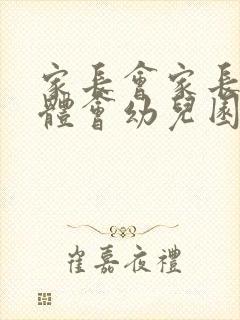 家長會家長
體會幼兒園
崔嘉夜禮